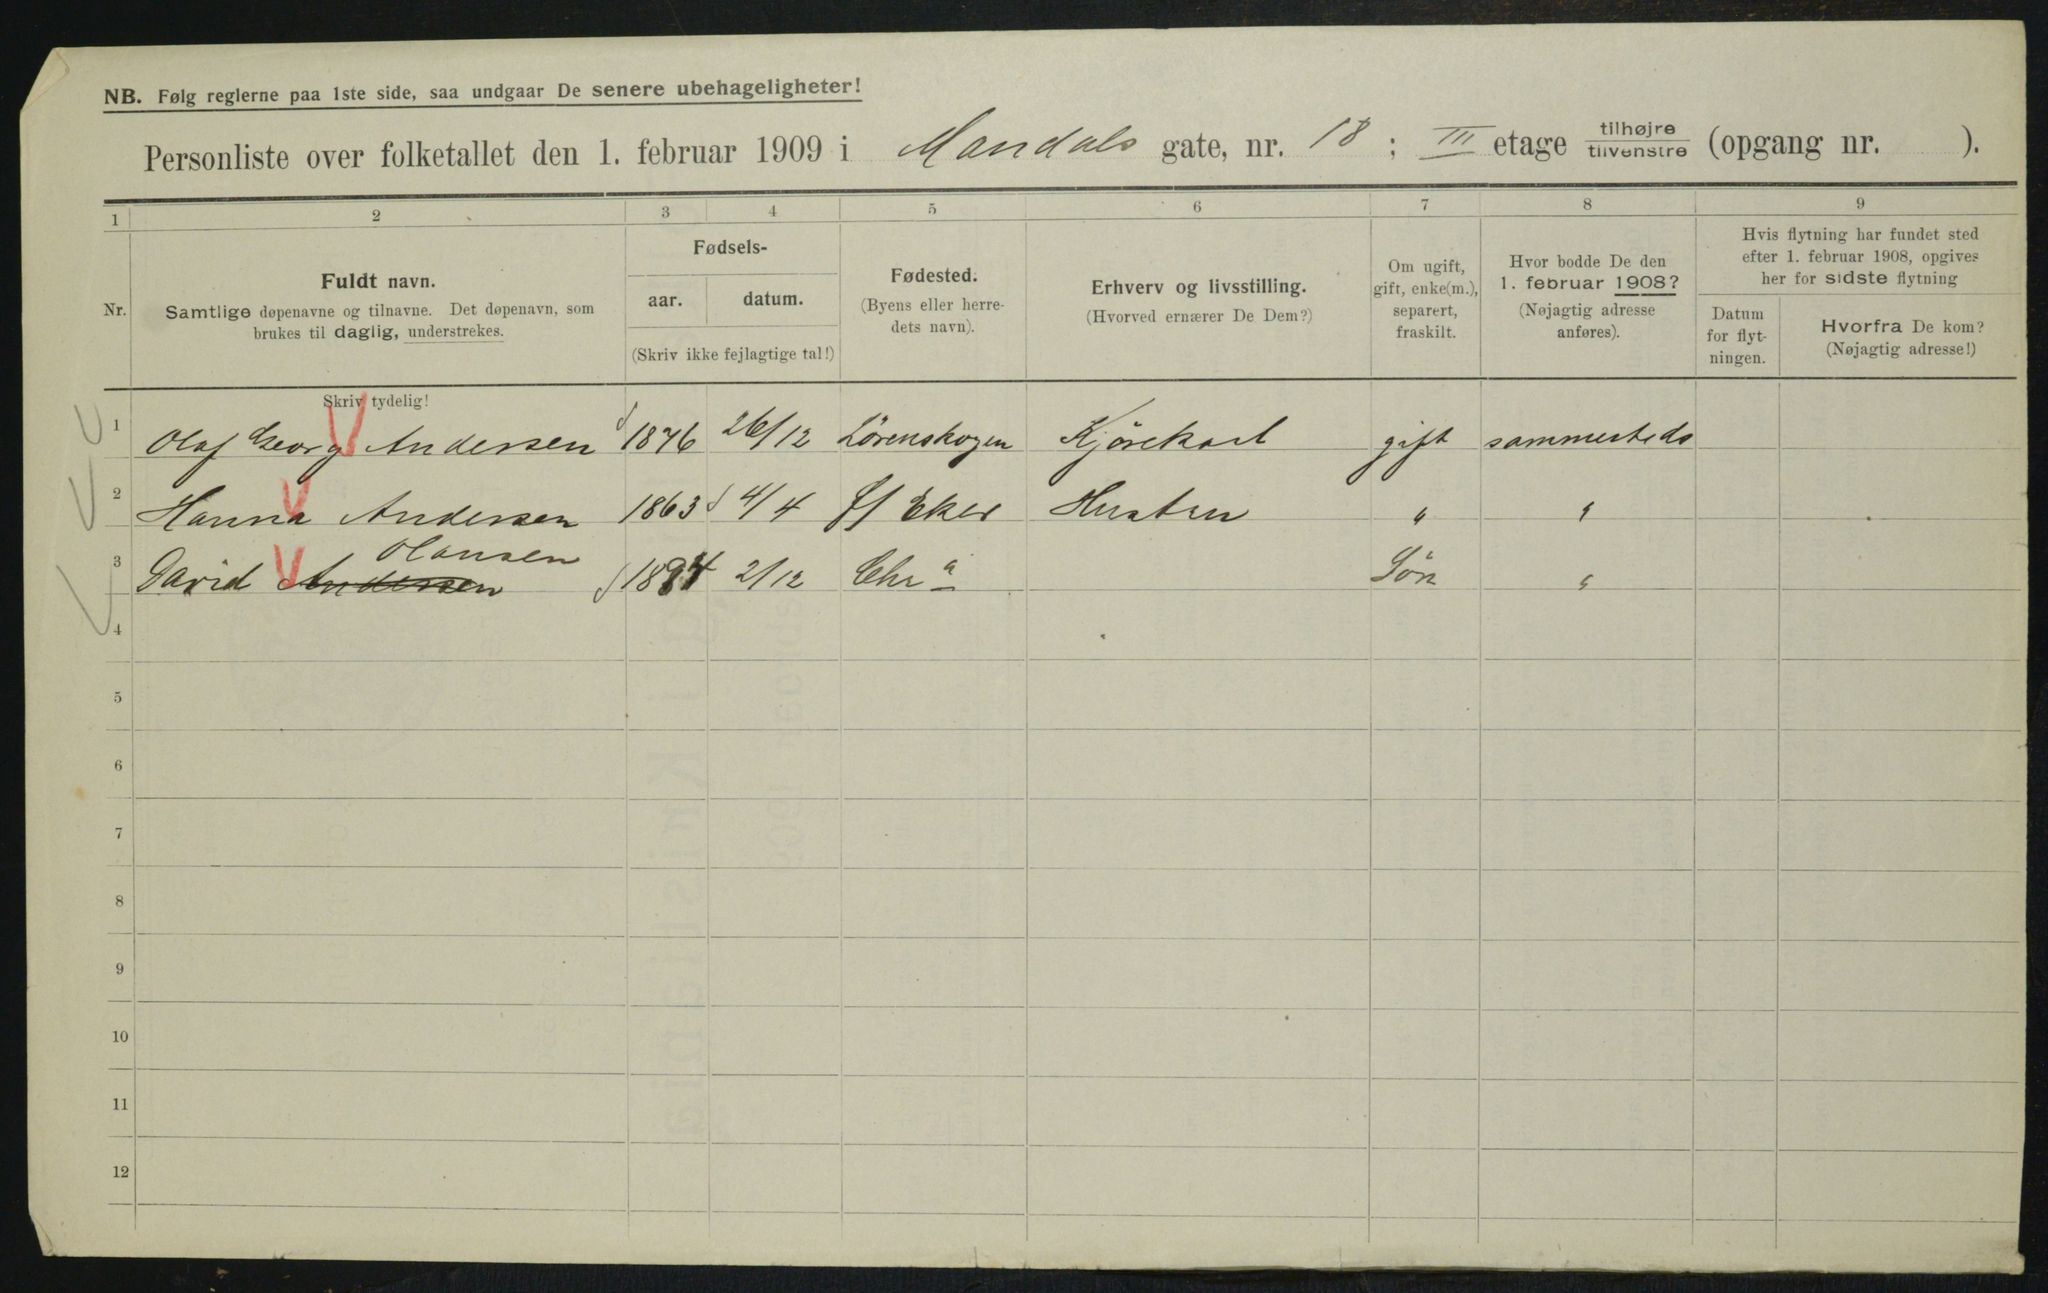 NB. Følg reglerne paa 1ste side, saa undgaar De senere ubehageligheter!
Personliste over folketallet den 1. februar 1909 i Mandals gate, nr. 18 ; III etage tilhøjre tilvenstre (opgang nr. ).
1 2 3 4 5 6 7 8 9
Nr.
Fuldt navn.
Samtlige døpenavne og tilnavne. Det døpenavn, som
brukes til daglig, understrekes.
Fødsels-
aar. datum.
(Skriv ikke fejlagtige tal!)
Fødested.
(Byens eller herre-
dets navn).
Erhverv og livsstilling.
(Hvorved ernærer De Dem?)
Om ugift,
gift, enke(m.),
separert,
fraskilt.
Hvor bodde De den
1. februar 1908?
(Nøjagtig adresse
anføres).
Hvis flytning har fundet sted
efter 1. februar 1908, opgives
her for sidste flytning
Datum
for flyt-
ningen.
Hvorfra De kom?
(Nøjagtig adresse!)
Skriv tydelig!
1 Olaf Georg Andersen 1876 26/12 Lörenskogen Kjörekarl gift sammesteds
2 Hanna Andersen 1863 4/4 Ø/Eker Hustru " "
Olausen
3 David Andersen 1894 2/12 Chr a Sön "
4
5
6
7
8
9
10
11
12